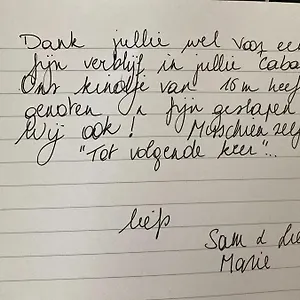 Dank jullie wel voor een
fijn verblijf in jullie caba
Ons kindje van 16m heef
genoten n fijn geslapen
Wij ook! Misschien zelf
"Tot volgende keer"...
liefs
Sam &
Marie